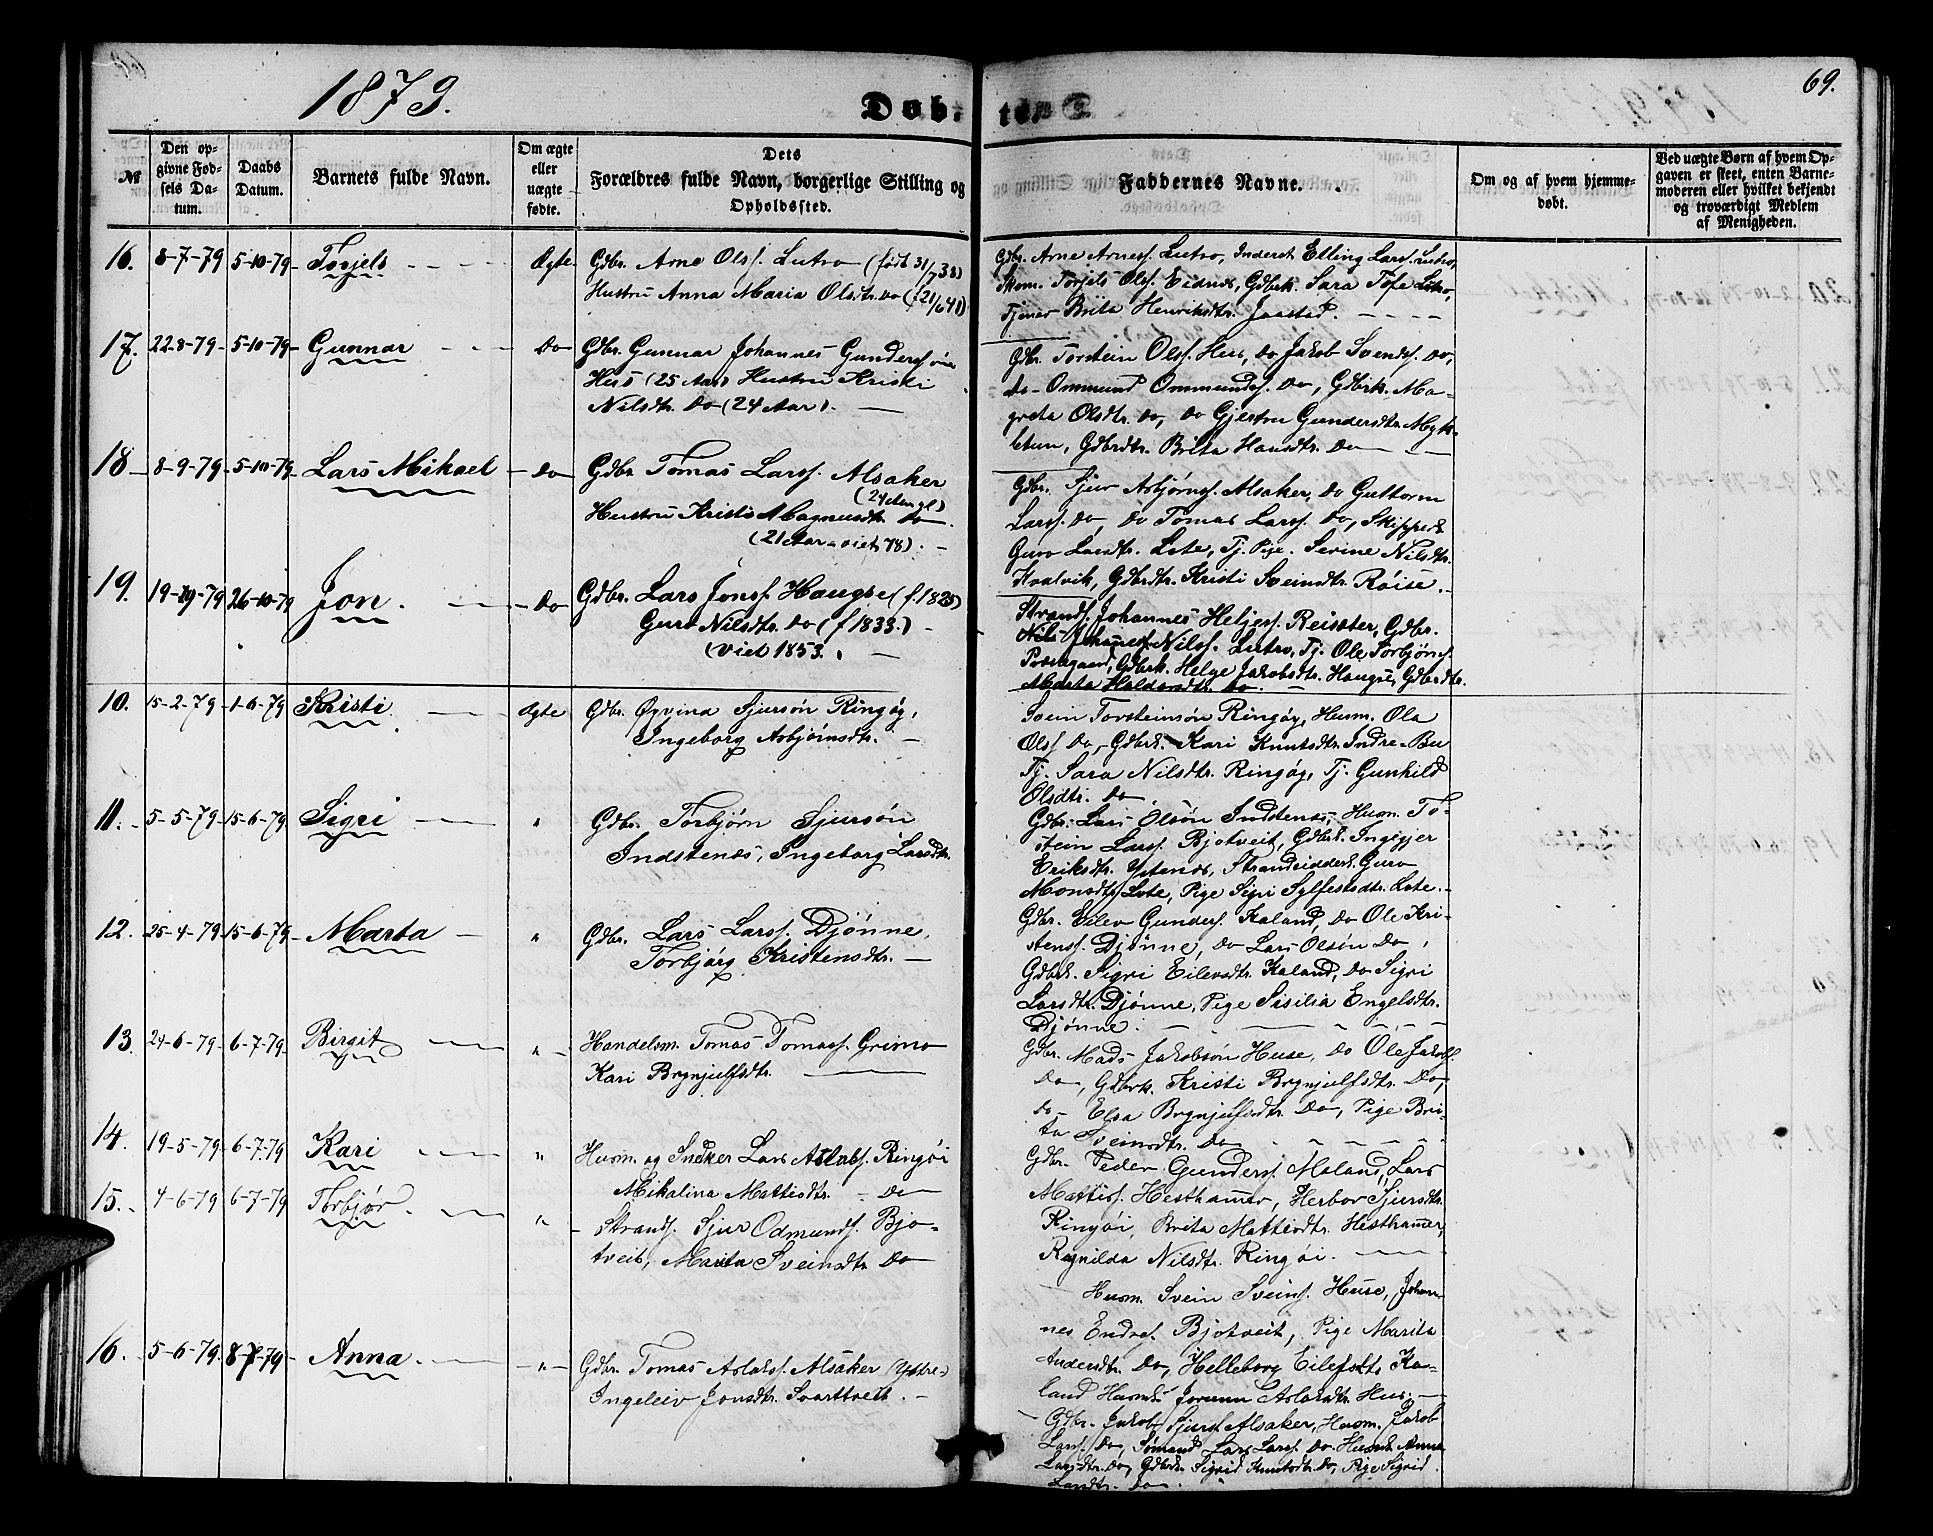 1879.
Døbte.
69.
№
Den opgivne Fødsels Datum.
Daabs Datum.
Barnets fulde Navn.
Om ægte eller uægte fødte.
Dets Forældres fulde Navn, borgerlige Stilling og Opholdssted.
Faddernes Navne.
Om og af hvem hjemmedøbt.
Ved uægte Børn af hvem Opgaven er skeet, enten Barnemoderen eller hvilket bekjendt og troværdigt Medlem af Menigheden.
16. 8-7-79 5-10-79 Torjels Ægte Gdbr. Arne Olss. Lutro (født 31/7 38)
Hustru Anna Maria Olsdtr. Do (f. 21/6 40)
Gdbr. Arne Arness. Lutro, Inderst Elling Larss. Lutro,
Skom. Torjels Olss. Eidnes, Gdbrk. Sara Tofe Lutro,
Tjener Brita Henriksdtr. Jaastad.
17. 22-8-79 5-10-79 Gunnar Do Gdbr. Gunnar Johannes Gunderssøn
Hus (25 Aar) Hustru Kristi
Nilsdtr. Do (24 Aar).
Gdbr. Torstein Olss. Hus, Do Jakob Svends. Do,
do Ommund Ommunds. Do, Gdbrk. Ma-
greta Olsdtr. Do, Do Gjertru Gundersdtr. Myk-
letun, Gdbrdtr. Brita Hansdtr. Do
18 8-9-79 5-10-79 Lars Mikael Do Gdbr. Tomas Larss. Alsaker
(24 Aar gl)
Hustru Kristi Magnusdtr. Do
(21 Aar - viet 78).
Gdbr. Sjur Asbjørns. Alsaker, Do Guttorm
Larss. Do, Do Tomas Larss. Do, Skippers
Guro Larsdtr. Lote, Tj. Pige. Serine Nilsdtr.
Kvalvik, Gdbrdtr. Kristi Sveinsdtr. Røise.
19. 19-10-79 26-10-79 Jon. Do Gdbr. Lars Jonss. Haugse (f. 1825)
Guro Nilsdtr. Do (f 1833.)
(viet 1853.
Strands. Johannes Heljess. Reisæter, Gdbr.
Nils Johannes Nilss. Lutro, Tj. Ole Torbjøns.
Gdbrk. Helge Jakobsdtr. Haugse, Gdbrdtr.
Marta Haldorsdtr. Do.
10. 15-2-79 1-6-79 Kristi. Ægte Gdbr. Øyvind Sjursøn Ringøy,
Ingeborg Asbjørnsdtr.
Svein Torsteinsøn Ringøy, Husm. Ola
Olss Do, Gdbrk. Kari Knutsdtr. Indre-Bu
Tj. Sara Nilsdtr. Ringøy, Tj. Gunhild
Olsdtr. Do.
11. 5-5-79 15-6-79 Sigri " Gdbr. Torbjørn Sjursøn
Indstenes, Ingeborg Larsdtr.
Gdbr. Lars Olsøn Indstenes, Husm. To-
stein Larss. Bjotveit, Gdbrk. Ingigjer
Eriksdtr. Ystenes, Strandsidderk. Guro
Monsdtr. Lote, Pige Sigri Sylfestsdtr. Lote.
12. 25-4-79 15-6-79 Marta " Gdbr. Lars Larss. Djønne,
Torbjørg Kristensdtr.
Gdbr. Eilev Gunders. Kaland, Do Ole Kri-
stenss. Djønne, Do Lars Olsøn Do,
Gdbrk. Sigri Eilevsdtr. Kaland, Do Sigri
Larsdtr. Djønne, Pige Sisilia Engelsdtr.
Djønne.
13. 24-6-79 6-7-79 Birgit " Handelsm. Tomas Tomass. Grimo
Kari Brynjulfsdtr.
Gdbr. Mads Jakobsøn Huse, Do Ole Jakobs.
Do, Gdbrk. Kristi Brynjulfsdtr. Do,
do Elsa Brynjulfsdtr. Do, Pige Bri-
ta Sveinsdtr. Do
14. 19-5-79 6-7-79 Kari " Husm. og Snekker Lars Aslaks. Ringøi
Mikalina Mattisdtr. Do
Gdbr. Peder Gunderss. Maland, Lars
Mattiss. Hesthammer, Herbor Sjursdtr.
Ringøi, Brita Mattisdtr. Hesthammer,
Ragnilda Nilsdtr. Ringøi.
15. 4-6-79 6-7-79 Torbjør. " Strands. Sjur Odmunds. Bjo-
tveit, Marita Sveinsdtr. Do
Husm. Svein Sveins. Huse, Johan-
nes Endres. Bjotveit, Pige Marita
Andersdtr. Do, Helleborg Eilefsdtr. Ka-
land Husmk. Jorunn Aslaksdtr. Hus.
16. 5-6-79. 8-7-79 Anna. " Gdbr. Tomas Aslakss. Alsaker (Ystre)
Ingeleiv Jonsdtr. Svarttveit.
Gdbr. Jakob Sjurss. Alsaker, Husm. Jakob
Larss. Do, Sømand Lars Larss. Do. Husmk. Anna
Larsdtr. Do, Gdbrk. Sigrid Knutsdtr. Do, Pige Sigrid
Larsdtr. Do.